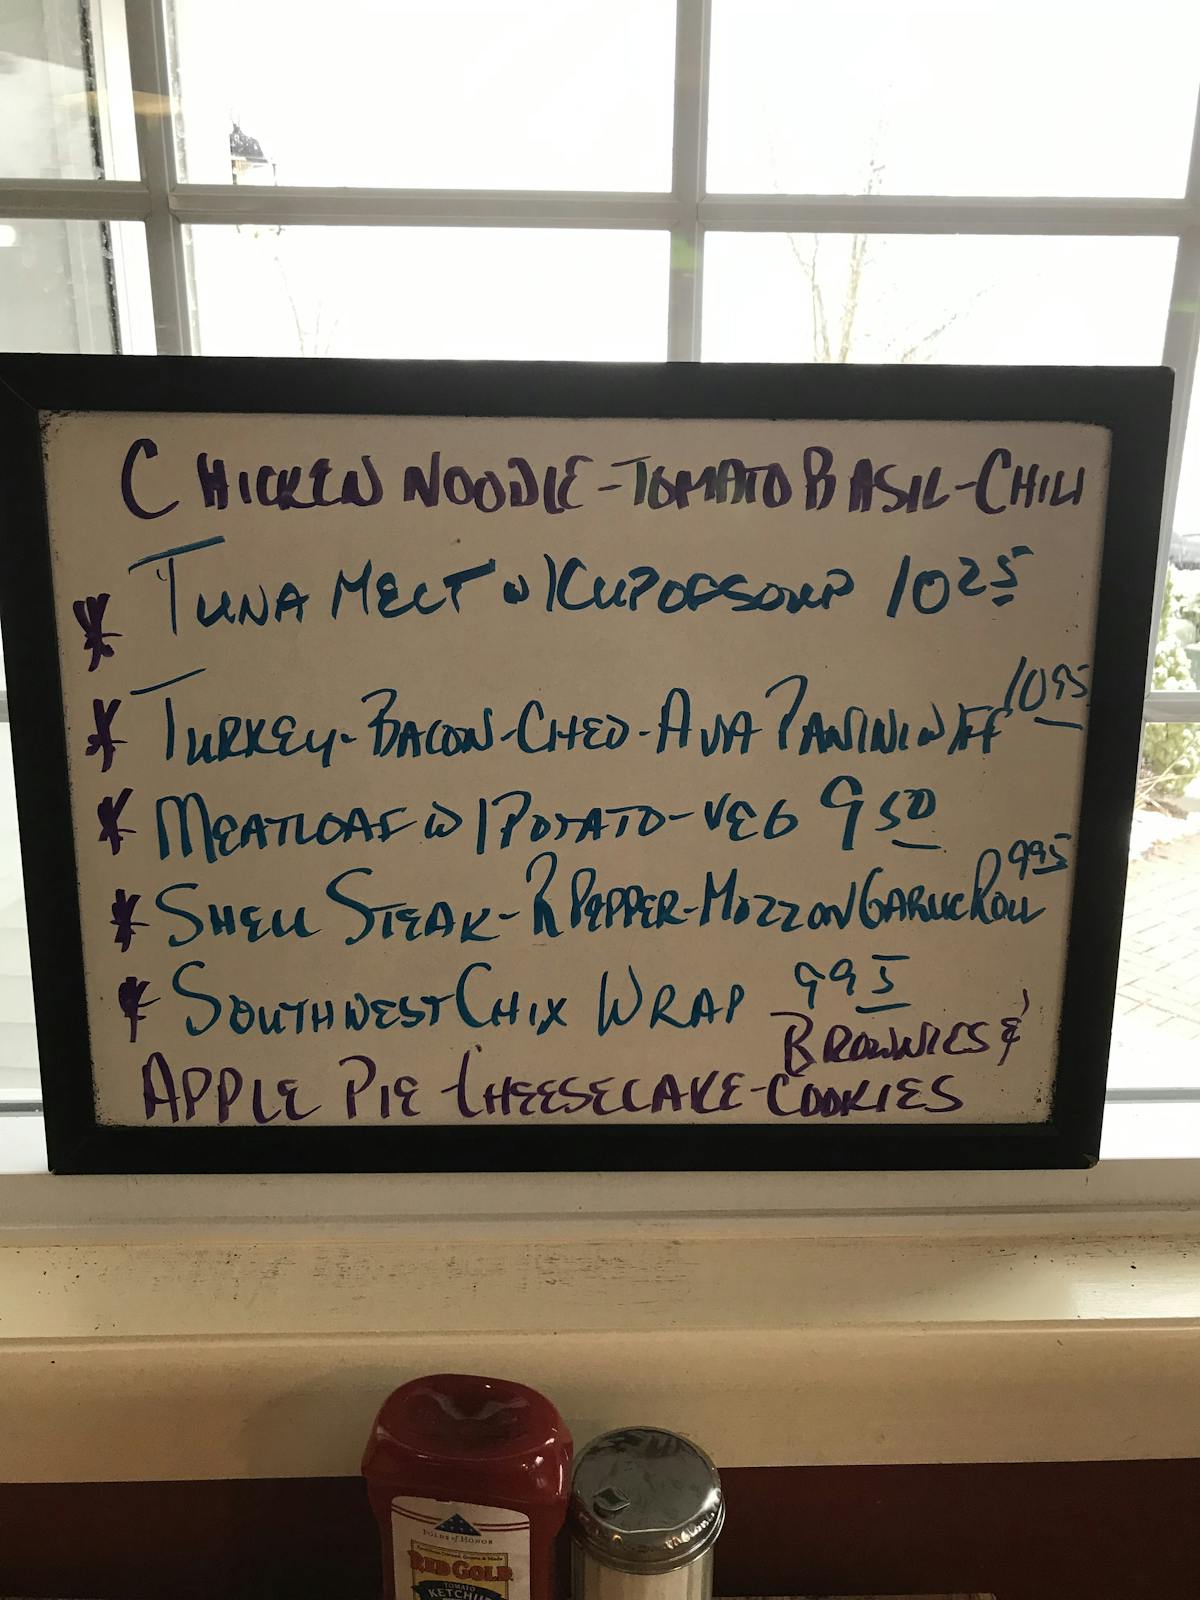 CHICKEN NOODLE-TOMATO BASIL-CHILI
* TUNA MELT W/CUP OF SOUP 10 25
* TURKEY-BACON-CHED-AVA PANINI W/FF 10 95
* MEATLOAF W/POTATO-VEG 9 50
* SHELL STEAK-R PEPPER-MOZZ ON GARLIC ROLL 9 95
* SOUTHWEST CHIX WRAP 9 95
BROWNIES &
APPLE PIE-CHEESECAKE-COOKIES
FOLDS of HONOR
RED GOLD
TOMATO
KETCHUP